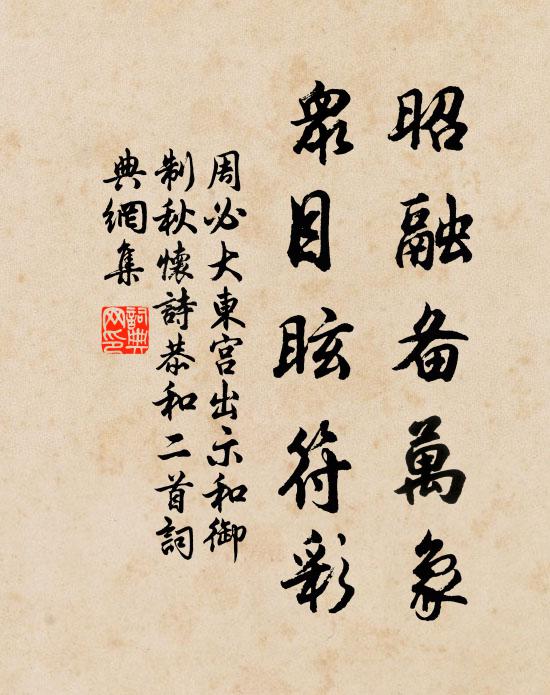 昭融备萬象
眾目眩符彩
周必大東宫出示和御
制秋懷詩恭和二首詞
典網集
詞典網印